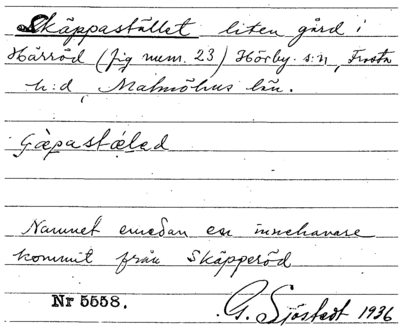 Skäppastället liten gård i
Härröd (fig num. 23) Hörby s:n, Frosta
h:d, Malmöhus län.
Namnet emedan en innehavare
kommit från Skäpperöd
Nr 5558. G. Sjöstedt 1936